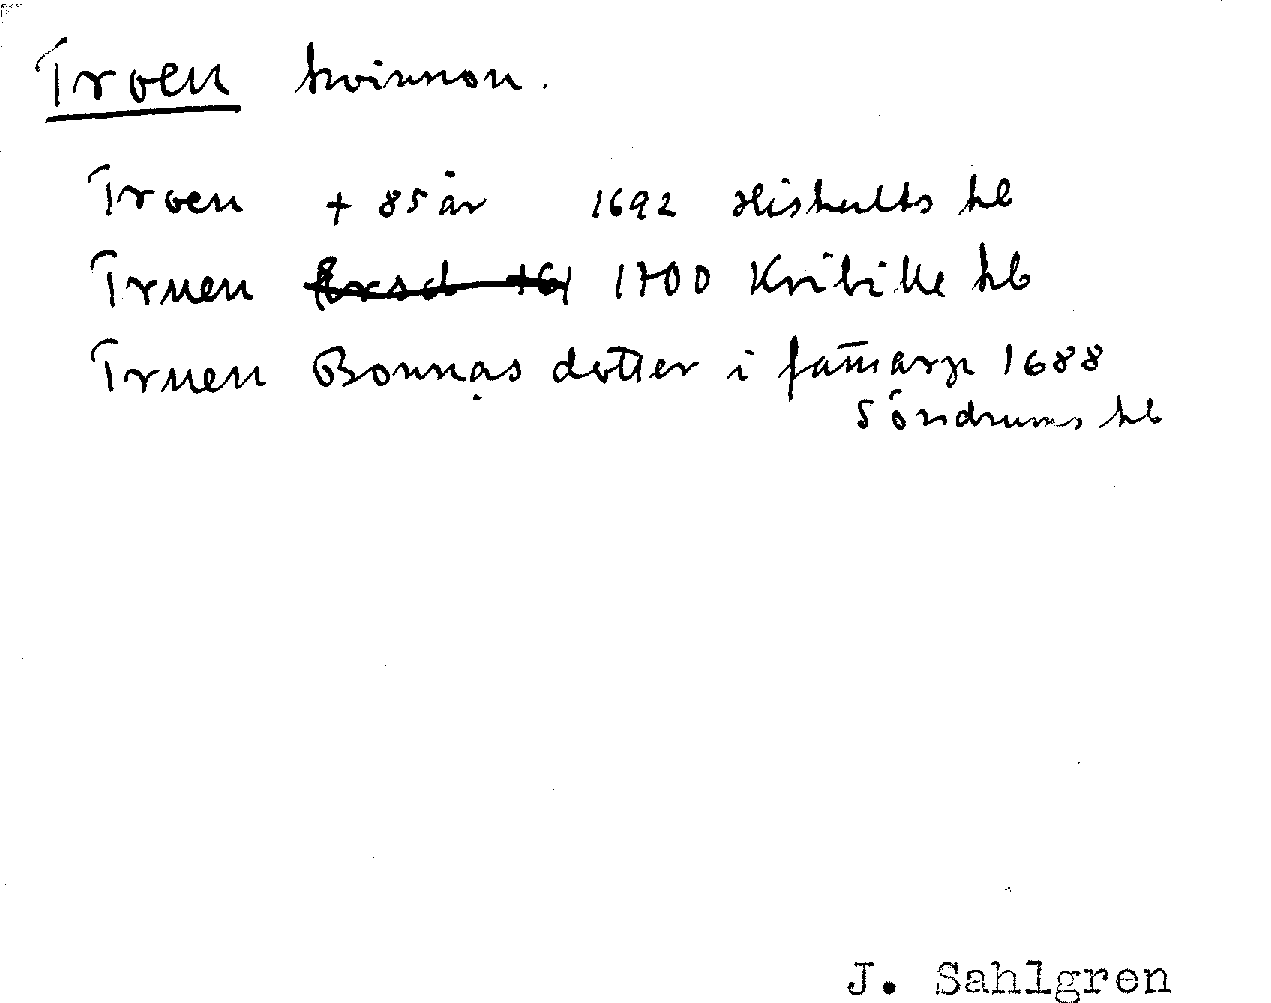 Troen kvinnon.
Troen + 85 år 1692 Hishults kb
Truen 1700 Kvibille kb
Truen Bonnas dotter i fam̅arp 1688
Söndrums kb
J. Sahlgren